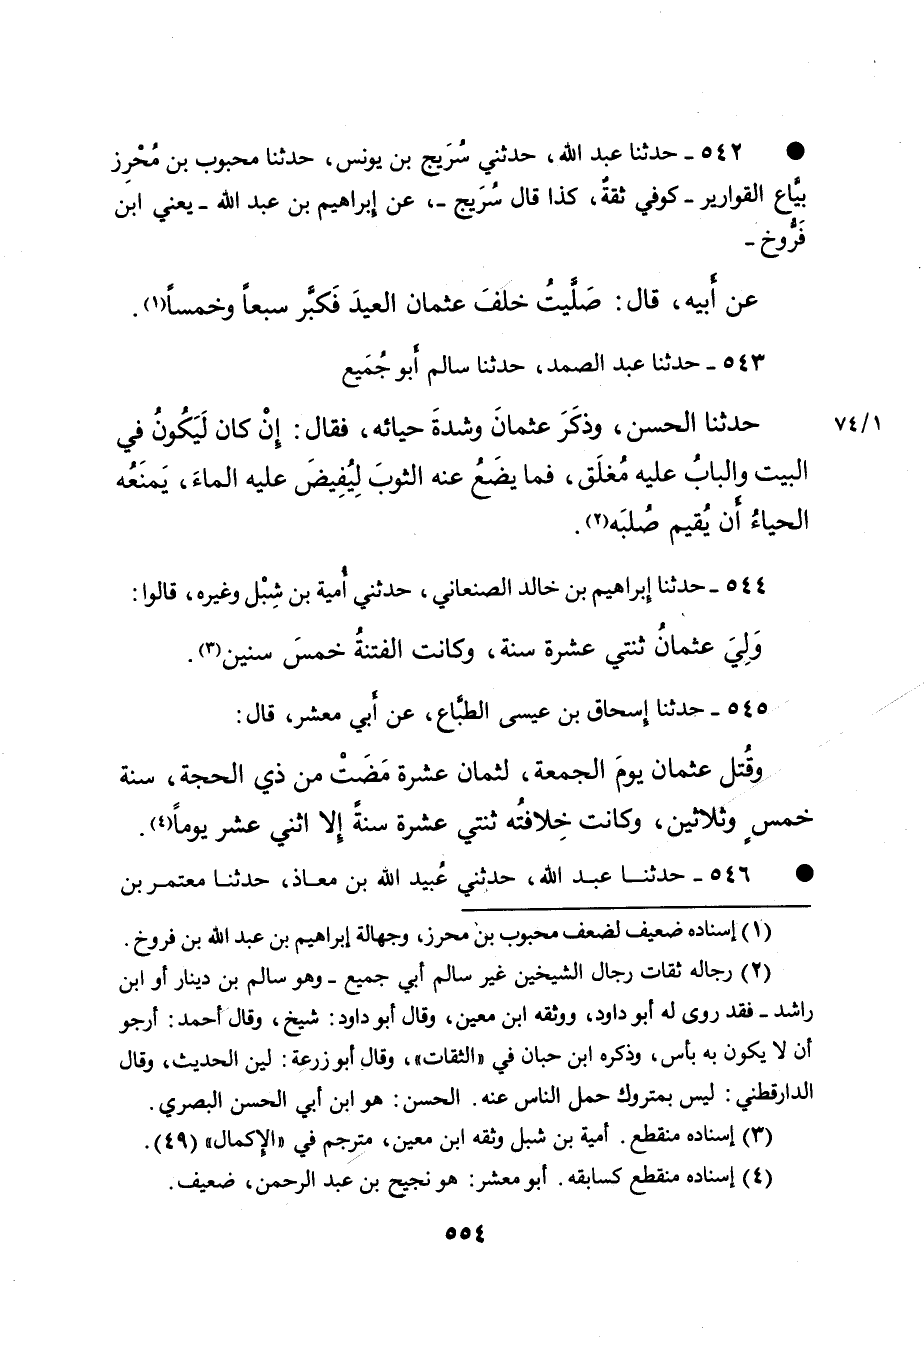 ● ٥٤٢ ـ حدثنا عبد الله، حدثني سُرَيج بن يونس، حدثنا محبوب بن مُحْرِز
بيَّاع القوارير ـ كوفي ثقةٌ، كذا قال سُرَيج ـ، عن إبراهيم بن عبد الله ـ يعني ابن
فَرُّوخ ـ
عن أَبيه، قال: صَلَّيتُ خلفَ عثمان العيدَ فَكبَّر سبعاً وخمساً(١).
٥٤٣ ـ حدثنا عبد الصمد، حدثنا سالم أَبو جُمَيع
٧٤/١ حدثنا الحسن، وذكَرَ عثمانَ وشدةَ حيائه، فقال: إِنْ كان لَيَكُونُ في
البيت والبابُ عليه مُغلَق، فما يضَعُ عنه الثوبَ لِيُفيضَ عليه الماءَ، يَمنَعُه
الحياءُ أَن يُقيم صُلبَه(٢).
٥٤٤ ـ حدثنا إبراهيم بن خالد الصنعاني، حدثني أُمية بن شِبْل وغيره، قالوا:
وَلِيَ عثمانُ ثنتي عشرة سنة، وكانت الفتنةُ خمسَ سنين(٣).
٥٤٥ ـ حدثنا إسحاق بن عيسى الطبَّاع، عن أَبي معشر، قال:
وقُتل عثمان يومَ الجمعة، لثمان عشرة مَضَتْ من ذي الحجة، سنة
خمسٍ وثلاثين، وكانت خِلافتُه ثنتي عشرة سنةً إلا اثني عشر يوماً(٤).
● ٥٤٦ ـ حدثنا عبد الله، حدثني عُبيد الله بن معاذ، حدثنا معتمر بن
(١) إسناده ضعيف لضعف محبوب بن محرز، وجهالة إبراهيم بن عبد الله بن فروخ.
(٢) رجاله ثقات رجال الشيخين غير سالم أبي جميع ـ وهو سالم بن دينار أو ابن
راشد ـ فقد روى له أبو داود، ووثقه ابن معين، وقال أبو داود: شيخ، وقال أحمد: أرجو
أن لا يكون به بأس، وذكره ابن حبان في «الثقات»، وقال أبو زرعة: لين الحديث، وقال
الدارقطني: ليس بمتروك حمل الناس عنه. الحسن: هو ابن أبي الحسن البصري.
(٣) إسناده منقطع. أمية بن شبل وثقه ابن معين، مترجم في «الإكمال» (٤٩).
(٤) إسناده منقطع كسابقه. أبو معشر: هو نجيح بن عبد الرحمن، ضعيف.
٥٥٤